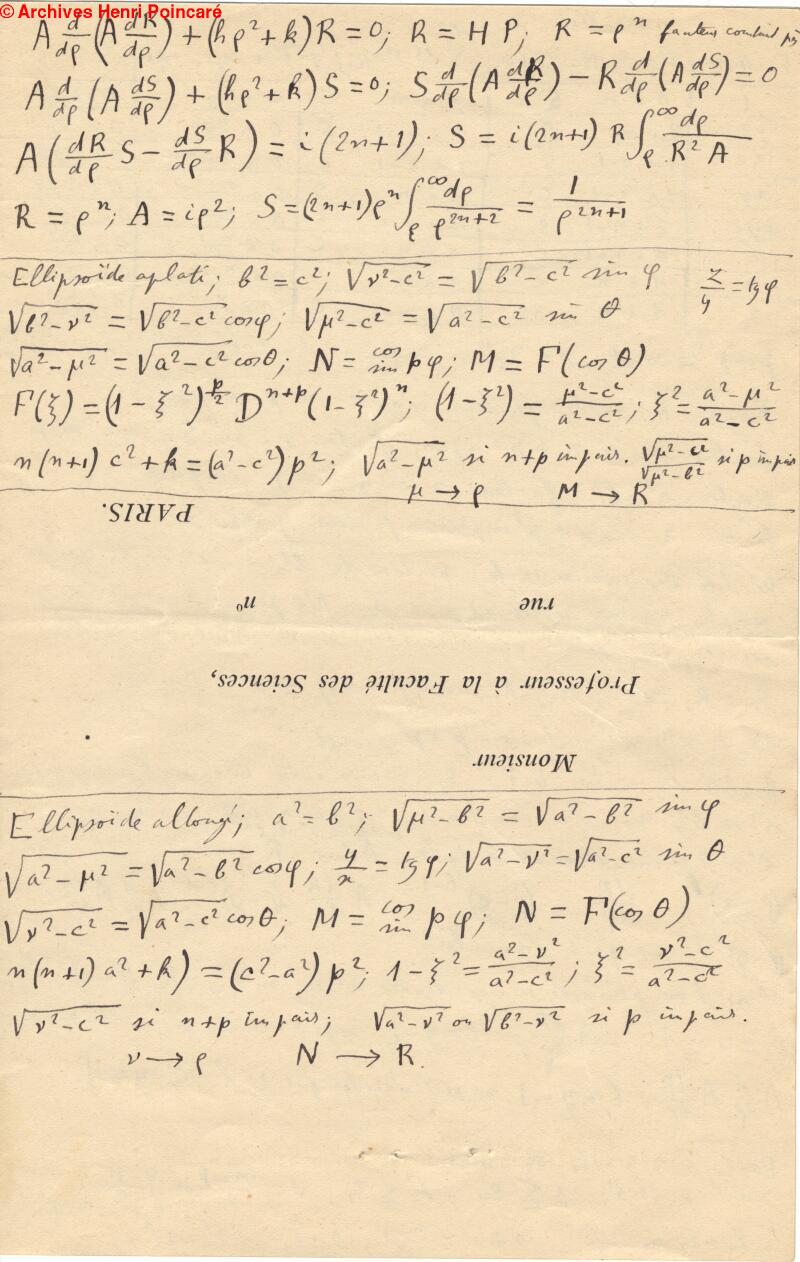 © Archives Henri Poincaré
A d/dρ (A dR/dρ) + (hρ² + k) R = 0; R = H P; R = ρⁿ facteur constant près
A d/dρ (A dS/dρ) + (hρ² + k) S = 0; S d/dρ (A dR/dρ) − R d/dρ (A dS/dρ) = 0
A (dR/dρ S − dS/dρ R) = i (2n+1); S = i (2n+1) R ∫_ρ^∞ dρ/(R² A)
R = ρⁿ; A = iρ²; S = (2n+1) ρⁿ ∫_ρ^∞ dρ/ρ²ⁿ⁺² = 1/ρ²ⁿ⁺¹
Ellipsoïde aplati; b² = c²; √(ν²−c²) = √(b²−c²) sin φ z/y = tg φ
√(b²−ν²) = √(b²−c²) cos φ; √(μ²−c²) = √(a²−c²) sin θ
√(a²−μ²) = √(a²−c²) cos θ; N = cos/sin pφ; M = F(cos θ)
F(ξ) = (1−ξ²)^(p/2) Dⁿ⁺ᵖ (1−ξ²)ⁿ; (1−ξ²) = (μ²−c²)/(a²−c²); ξ² = (a²−μ²)/(a²−c²)
n(n+1) c² + k = (a²−c²) p²; √(a²−μ²) si n+p impair. √(μ²−c²) √(μ²−b²) si p impair
μ → ρ M → R
PARIS.
rue nº
Professeur à la Faculté des Sciences,
Monsieur
Ellipsoïde allongé; a² = b²; √(μ²−b²) = √(a²−b²) sin φ
√(a²−μ²) = √(a²−b²) cos φ; y/x = tg φ; √(a²−ν²) = √(a²−c²) sin θ
√(ν²−c²) = √(a²−c²) cos θ; M = cos/sin pφ; N = F(cos θ)
n(n+1) a² + k) = (c²−a²) p²; 1−ξ² = (a²−ν²)/(a²−c²); ξ² = (ν²−c²)/(a²−c²)
√(ν²−c²) si n+p impair; √(a²−ν²) ou √(b²−ν²) si p impair.
ν → ρ N → R.